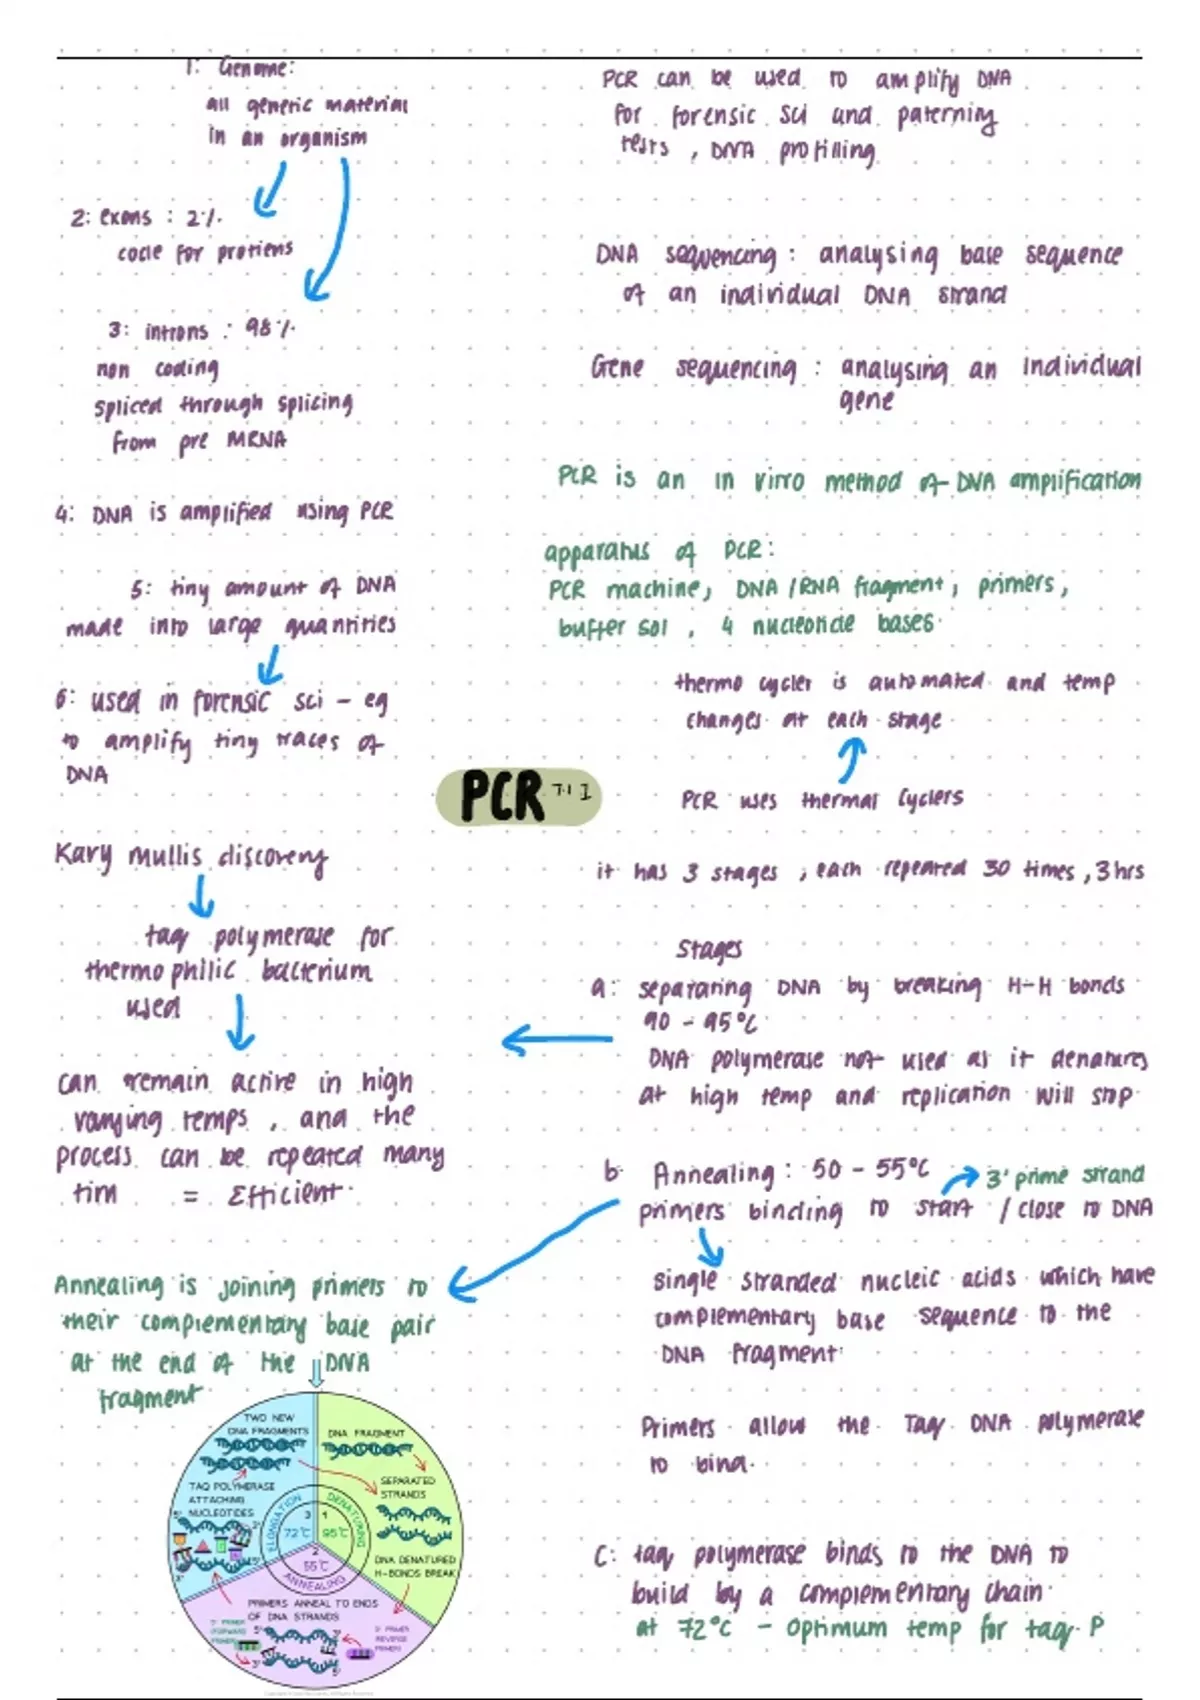 1: Genome:
all genetic material
in an organism
2: exons : 2%
code for protiens
3: introns : 98%
non coding
spliced through splicing
from pre MRNA
4: DNA is amplified using PCR
5: tiny amount of DNA
made into large quantities
6: used in forensic sci – eg
to amplify tiny traces of
DNA
Kary mullis discovery
taq polymerase for
thermophilic bacterium
used
can remain active in high
varying temps , and the
process can be repeated many
tim = Efficient.
Annealing is joining primers to
their complementary base pair
at the end of the DNA
fragment
PCR 7.1 1
PCR can be used to amplify DNA
for forensic sci and paterning
tests , DNA profilling
DNA sequencing : analysing base sequence
of an individual DNA strand
Gene sequencing : analysing an individual
gene
PCR is an in vitro method of DNA amplification
apparatus of PCR:
PCR machine, DNA / RNA fragment, primers,
buffer sol , 4 nucleotide bases.
thermo cycler is automated and temp
changes at each stage
PCR uses thermal cyclers
it has 3 stages , each repeated 30 times , 3 hrs
Stages
a: separating DNA by breaking H-H bonds
90 - 95°C
DNA polymerase not used as it denatures
at high temp and replication will stop
b Annealing : 50 - 55°C
3' prime strand
primers binding to start / close to DNA
single stranded nucleic acids which have
complementary base sequence to the
DNA fragment
Primers allow the Taq DNA polymerase
to bind.
C: taq polymerase binds to the DNA to
build by a complementary chain
at 72°C – Optimum temp for taq P
TWO NEW
DNA FRAGMENTS
TAQ POLYMERASE
ATTACHING
NUCLEOTIDES
5'
3'
3'
5'
DNA FRAGMENT
SEPARATED
STRANDS
DNA DENATURED
H-BONDS BREAK
ELONGATION
3
72°C
DENATURING
1
95°C
2
55°C
ANNEALING
PRIMERS ANNEAL TO ENDS
OF DNA STRANDS
5' PRIMER
(FORWARD
PRIMER)
5'
3'
3'
5'
3' PRIMER
(REVERSE
PRIMER)